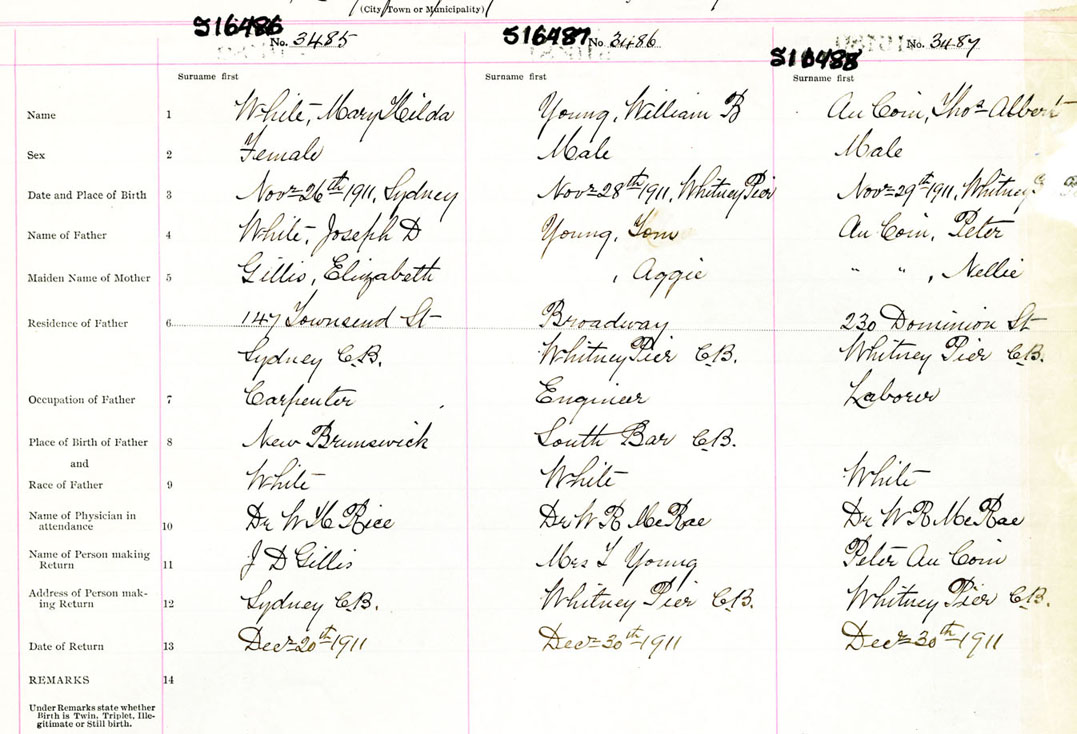 (City, Town or Municipality)
S16486 S16487 S16488
No. 3485 No. 3486 No. 3487
Surname first Surname first Surname first
Name 1 White, Mary Hilda Young, William B Au Coin, Thos Albert
Sex 2 Female Male Male
Date and Place of Birth 3 Novr 26th 1911, Sydney Novr 28th 1911, Whitney Pier Novr 29th 1911, Whitney
Name of Father 4 White, Joseph D Young, Tom Au Coin, Peter
Maiden Name of Mother 5 Gillis, Elizabeth , Aggie " " , Nellie
Residence of Father 6 147 Townsend St Broadway 230 Dominion St
Sydney C.B. Whitney Pier C.B. Whitney Pier C.B.
Occupation of Father 7 Carpenter Engineer Laborer
Place of Birth of Father 8 New Brunswick South Bar C.B.
and
Race of Father 9 White White White
Name of Physician in
attendance 10 Dr W H Rice Dr W R McRae Dr W R McRae
Name of Person making
Return 11 J D Gillis Mrs T Young Peter Au Coin
Address of Person mak-
ing Return 12 Sydney C.B. Whitney Pier C.B. Whitney Pier C.B.
Date of Return 13 Decr 20th 1911 Decr 30th 1911 Decr 30th 1911
REMARKS 14
Under Remarks state whether
Birth is Twin, Triplet, Ille-
gitimate or Still birth.